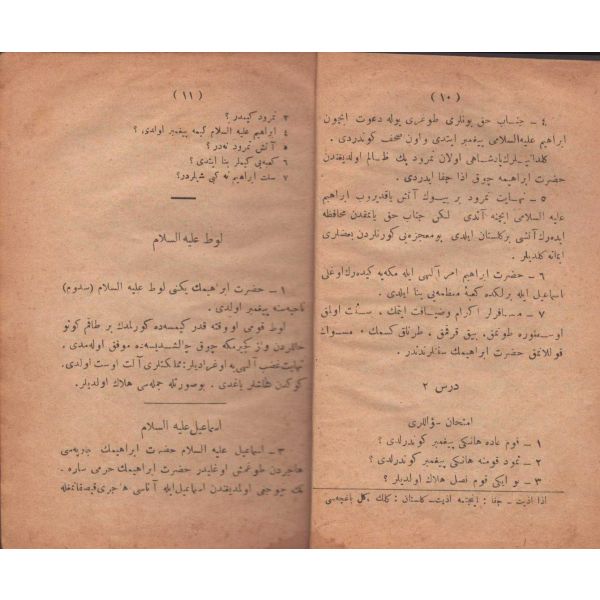 ( ١٠ )
٤ ـ جناب حق بونلرى طوغرى يوله دعوت ايچون
ابراهيم عليه‌السلامى پيغمبر ايتدى واون صحف كوندردى.
كلدانيلرك پادشاهى اولان نمرود پك ظالم اولديغندن
حضرت ابراهيمه چوق اذا جفا ايدردى.
٥ ـ نهايت نمرود بر بيوك آتش ياقديروب ابراهيم
عليه السلامى ايچنه آتدى لكن جناب حق يانمقدن محافظه
ايده‌رك آتشى بر كلستان ايلدى. بو معجزه‌يى كورنلردن بعضلرى
ايمانه كلديلر.
٦ ـ حضرت ابراهيم امر آلهى ايله مكه‌يه كيده‌رك اوغلى
اسماعيل ايله برلكده كعبۀ معظمه‌يى بنا ايلدى.
٧ ـ مسافرلر اكرام وضيافت ايتمك، سنت اولمق
اوستوره طوتمق، بيق قرقمق، طرناق كسمك، مسواك
قوللانمق حضرت ابراهيمك سنتلرندندر.
درس ٢
امتحان سؤاللرى
١ ـ قوم عاده هانكى پيغمبر كوندرلدى ؟
٢ ـ ثمود قومنه هانكى پيغمبر كوندرلدى ؟
٣ ـ بو ايكى قوم نصل هلاك اولديلر ؟
اذا اذيت ـ جفا : اينجتمه اذيت ـ كلستان : كلك، كل باغچه‌سى
( ١١ )
٣ نمرود كيمدر ؟
٤ ابراهيم عليه السلام كيمه پيغمبر اولدى ؟
٥ آتش نمرود نه‌در ؟
٦ كعبه‌يى كيملر بنا ايتدى ؟
٧ سنت ابراهيم نه كبى شيلردر؟
لوط عليه السلام
١ ـ حضرت ابراهيمك يكنى لوط عليه السلام (سدوم)
ناحيه‌سنه پيغمبر اولدى.
لوط قومى او وقته قدر كيمسه‌ده كورلمدك بر طاقم كوتو
حاللردن واز كچيرمكه چوق چالشديسه‌ده موفق اوله‌مدى.
نهايت غضب آلهى‌يه اوغراديلر: مملكتلرى آلت اوست اولدى،
كوكدن طاشلر ياغدى. بو صورتله جمله‌سى هلاك اولديلر.
اسماعيل عليه السلام
٣ ـ اسماعيل عليه السلام حضرت ابراهيمك جاريه‌سى
هاجردن طوغمش اوغليدر حضرت ابراهيمك حرمى ساره،
نك چوجغى اولمديغندن اسماعيل ايله آناسى هاجرى قيصقانمغله